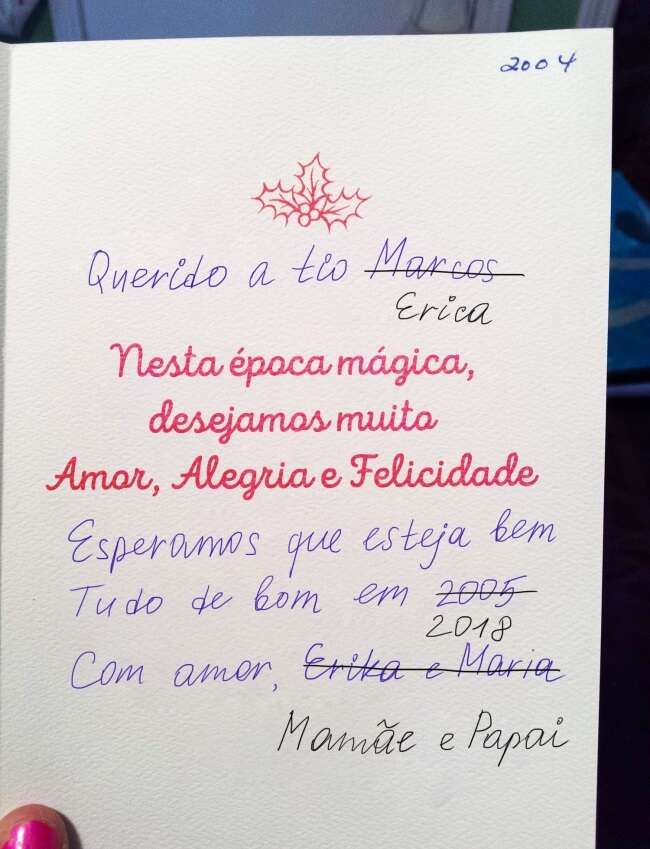 2004
Querido a tio Marcos
Erica
Nesta época mágica,
desejamos muito
Amor, Alegria e Felicidade
Esperamos que esteja bem
Tudo de bom em 2005
2018
Com amor, Erika e Maria
Mamãe e Papai